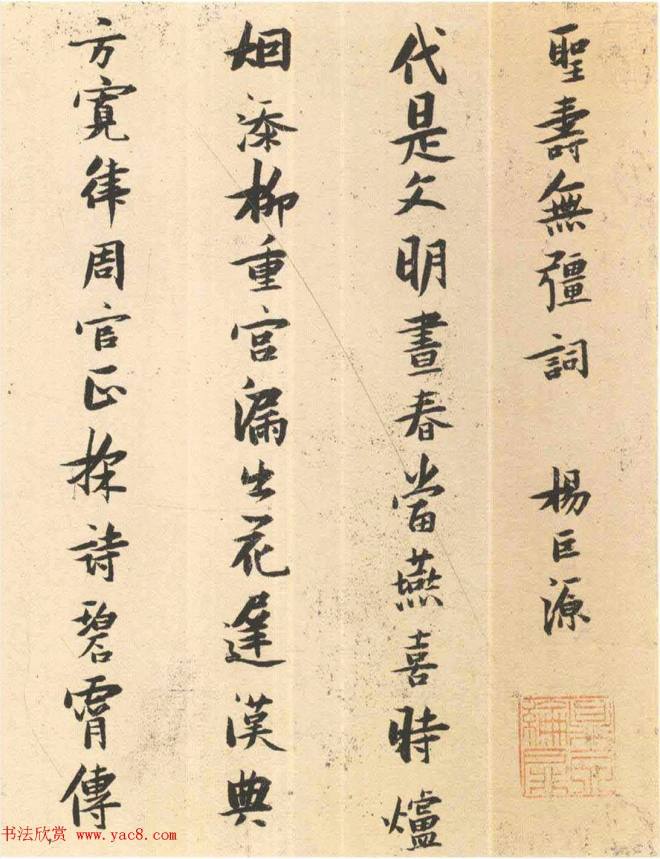 聖壽無疆詞 楊巨源
代是文明晝春當燕喜時爐
烟添柳重宮漏出花遲漢典
方寬律周官正採詩碧霄傳
书法欣赏 www.yac8.com